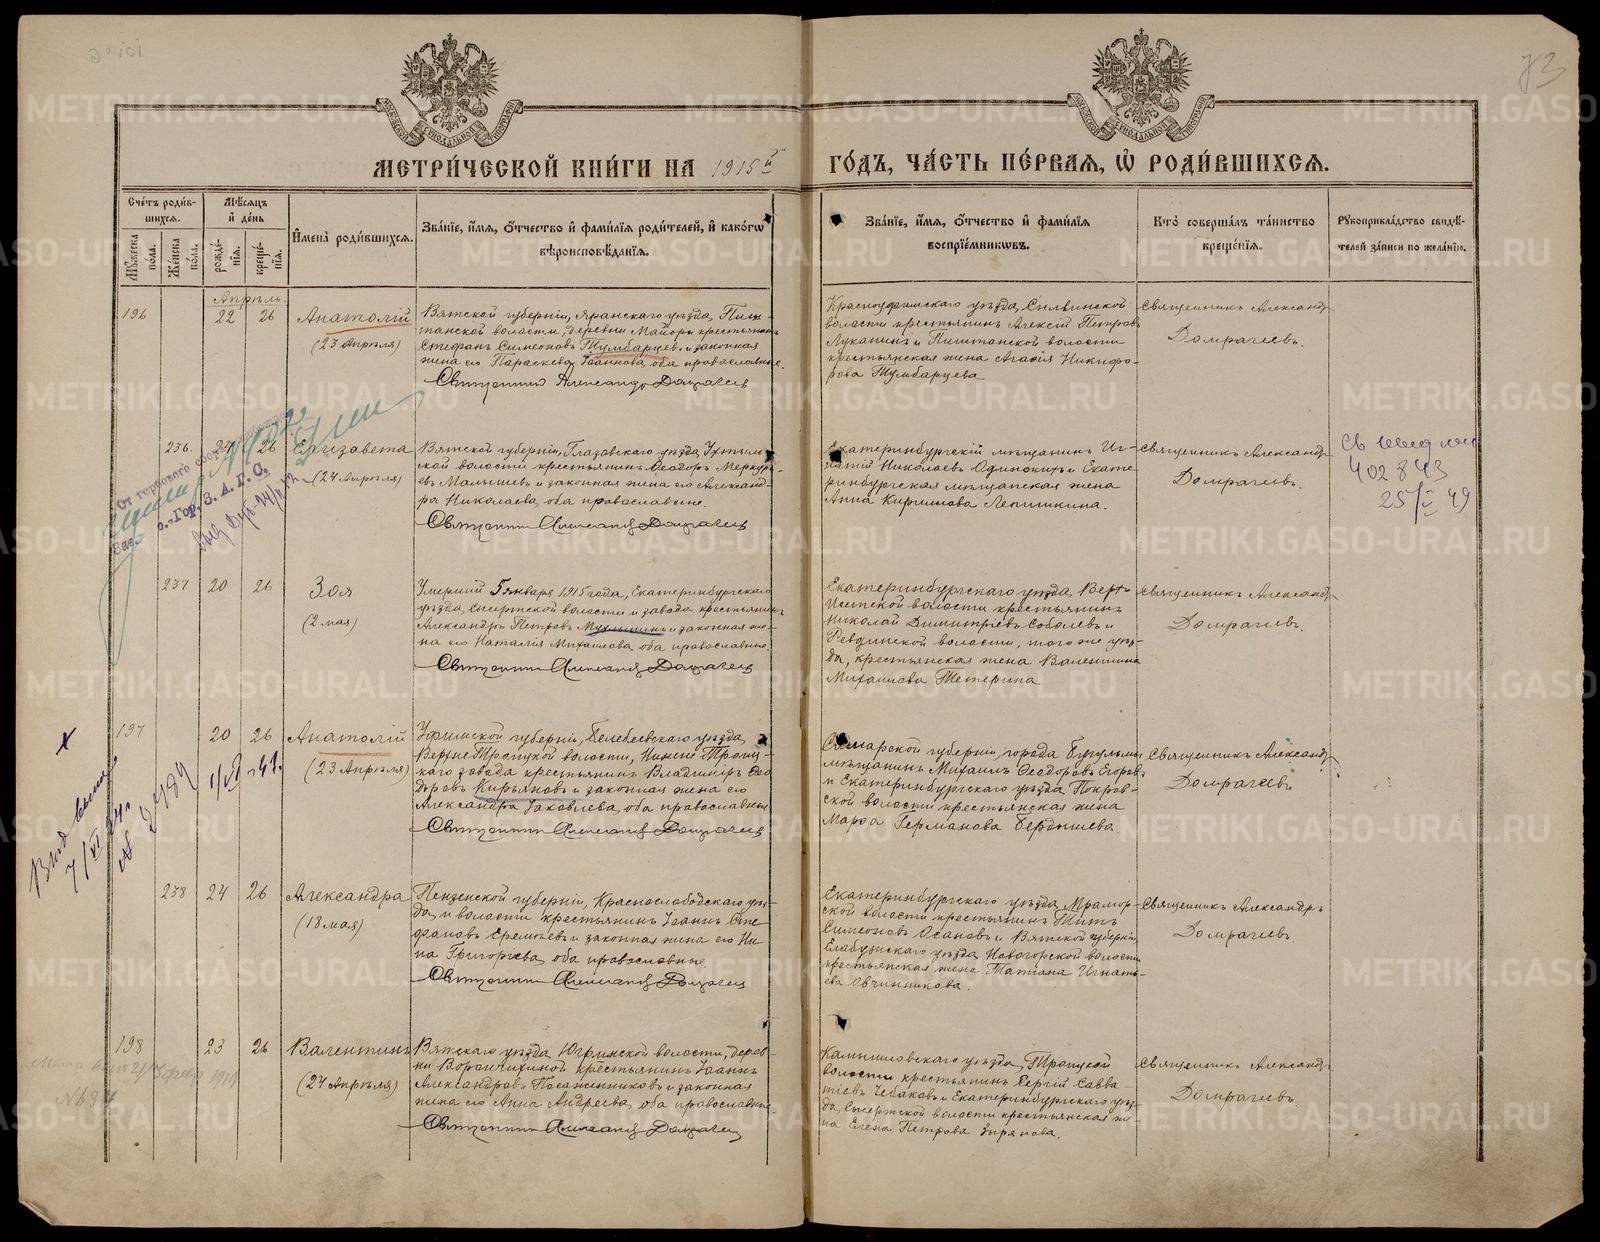 73
МЕТРИ́ЧЕСКОЙ КНИ́ГИ НА 1915й
ГО́ДЪ, ЧА́СТЬ ПЕ́РВАЯ, Ѽ РОДИ́ВШИХСЯ.
Сче́тъ роди́в-
шихся.
Мѣсяцъ
и҆ де́нь
Имена̀ роди́вшихся.
Зва́нїе, и҆́мя, ѻ҆́тчество и҆ фами́лїя роди́телей, и҆ како́гѡ
вѣроисповѣ́данїя.
Му́жеска
пола.
Же́нска
по́ла.
рожде́-
нїя.
креще́-
нїя.
Зва́нїе, и҆́мя, ѻ҆́тчество и҆ фами́лїя
воспрїе́мниковъ.
Кто̀ соверша́лъ та́инство
креще́нїя.
Рукоприкла́дство свидѣ́-
телей за́писи по жела́нїю.
Апрѣль.
196
22
26
Анатолій
(23 Апрѣля)
Вятской губерніи, Яранскаго уѣзда, Пиш-
танской волости, деревни Майоры крестьянинъ
Стефанъ Симеоновъ Тумбарцевъ и законная
жена его Параскева Іоаннова, оба православные.
Священникъ Александръ Домрачевъ
Красноуфимскаго уѣзда, Сильвинской
волости крестьянинъ Алексій Петровъ
Луканинъ и Пиштанской волости
крестьянская жена Агафія Никифо-
рова Тумбарцева
Священникъ Александръ
Домрачевъ.
236
24
26
Елизавета
(24 Апрѣля)
Вятской губерніи, Глазовскаго уѣзда, Ухтым-
ской волости крестьянинъ Ѳеодоръ Меркурі-
евъ Малышевъ и законная жена его Александ-
ра Николаева, оба православные.
Священникъ Александръ Домрачевъ
Екатеринбургскій мѣщанинъ Иг-
натій Николаевъ Одинокихъ и Екате-
ринбургская мѣщанская жена
Анна Кириллова Лепишкина.
Священникъ Александръ
Домрачевъ.
402843
25/V 49
От гербового сбора
237
20
26
Зоя
(2 мая)
Умершій 5 января 1915 года, Екатеринбургскаго
уѣзда, Сысертской волости и завода крестьянинъ
Александръ Петровъ Мухлынинъ и законная же-
на его Наталія Михаилова, оба православные.
Священникъ Александръ Домрачевъ
Екатеринбургскаго уѣзда, Верх-
Исетской волости крестьянинъ
Николай Димитріевъ Соболевъ и
Ревдинской волости, того же уѣз-
да, крестьянская жена Валентина
Михаилова Тетерина
Священникъ Александръ
Домрачевъ.
197
20
26
Анатолій
(23 Апрѣля)
Уфимской губерніи, Белебеевскаго уѣзда,
Верхне-Троицкой волости, Нижне-Троиц-
каго завода крестьянинъ Владиміръ Ѳео-
доровъ Кирьяновъ и законная жена его
Александра Іаковлева, оба православные
Священникъ Александръ Домрачевъ
Самарской губерніи, города Бугульмы
мѣщанинъ Михаилъ Ѳеодоровъ Егоровъ
и Екатеринбургскаго уѣзда Покров-
ской волости крестьянская жена
Марѳа Германова Бердышева.
Священникъ Александръ
Домрачевъ
238
24
26
Александра
(18 мая)
Пензенской губерніи, Краснослободскаго уѣз-
да, и волости крестьянинъ Іоаннъ Сте-
фановъ Еремѣевъ и законная жена его Ни-
на Григорьева, оба православные.
Священникъ Александръ Домрачевъ
Екатеринбургскаго уѣзда, Мрамор-
ской волости крестьянинъ Титъ
Симеоновъ Осановъ и Вятской губерніи,
Елабужскаго уѣзда, Новогорской волости
крестьянская жена Татіана Игнать-
ева Овчинникова.
Священникъ Александръ
Домрачевъ.
198
23
26
Валентинъ
(24 Апрѣля)
Вятскаго уѣзда, Югринской волости, дерев-
ни Ворончихиной крестьянинъ Іоаннъ
Александровъ Посаженниковъ и законная
жена его Анна Андреева, оба православные
Священникъ Александръ Домрачевъ
Камышловскаго уѣзда, Троицкой
волости крестьянинъ Сергій Савва-
тіевъ Чебаковъ и Екатеринбургскаго уѣз-
да, Сысертской волости крестьянская же-
на Елена Петрова Зырянова.
Священникъ Александръ
Домрачевъ